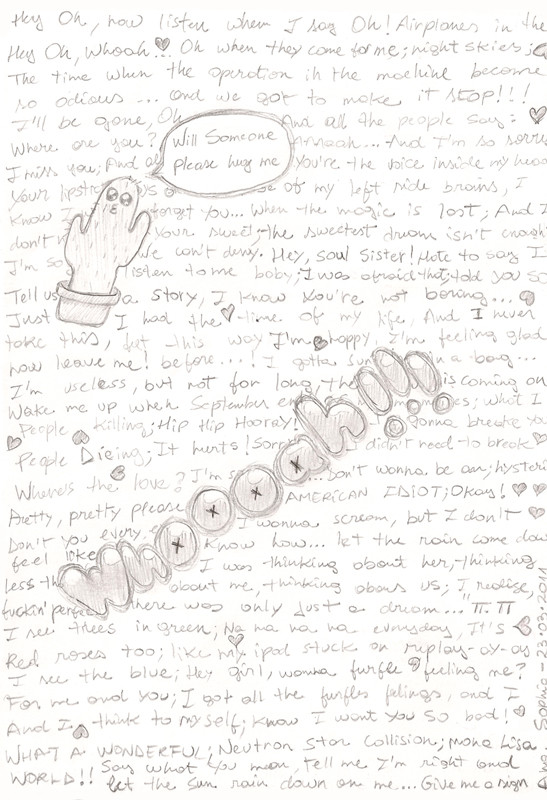 Hey Oh, now listen when I say Oh! Airplanes in the
Hey Oh, Whooh... Oh when they come for me; night skies;
The time when the operation in the machine become
so odious... and we got to make it stop!!!
I'll be gone, Oh And all the people say:
Where are you? Amaah... And I'm so sorry
Will Someone
please hug me
I miss you; And You're the voice inside my head
Your lipstick of my left side brains, I
Know I forget you... when the magic is lost; And I
don't Your sweet; the sweetest dream isn't enough
I'm so We can't deny. Hey, Soul Sister! Hate to say I
listen to me baby; I was afraid that; told you so
Tell us a story, I know you're not boring...
Just I had the time of my life, And I never
take this, but this way I'm happy, I'm feeling glad
now leave me! before...! I gotta in a bag...
I'm useless, but not for long, the is coming on
Wake me up when September what I
People killing; Hip Hip Hooray! Gonna break you
People Dieing; It hurts! Sorry I didn't need to break
Where's the love? I'm Don't wanna be an; hysteri
Pretty, pretty please AMERICAN IDIOT; Okay!
Whoooah!!!
Don't you every I wanna scream, but I don't
feel like Know how... let the rain come down
less th I was thinking about her, thinking
about me, thinking about us; I realise,
fuckin' perfect there was only just a dream... TT.TT
I see trees in green; Na na na na everyday, It's
Red roses too; like my ipod stuck on replay-ay-ay
I see the blue; Hey girl, wanna furfle feeling me?
For me and you; I got all the furfles felings, and I
And I think to myself; Know I want you so bad!
WHAT A WONDERFUL; Neutron Star Collision; mona Lisa
WORLD!! Say what you mean, tell me I'm right and
let the sun rain down on me... Give me a sign
Sophia - 23.03.2011